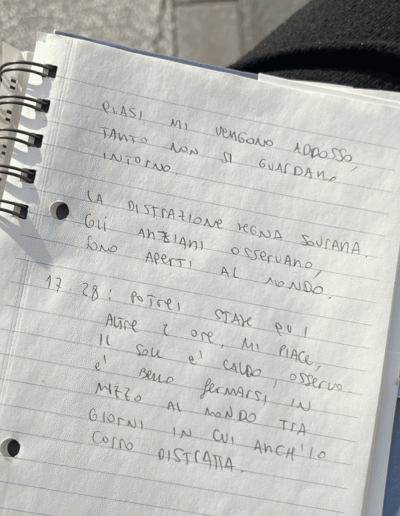 QUASI MI VENGONO ADDOSSO,
TANTO NON SI GUARDANO
INTORNO.
LA DISTRAZIONE REGNA SOVRANA.
GLI ANZIANI OSSERVANO,
SONO APERTI AL MONDO.
17.28: POTREI STARE QUI
ALTRE 2 ORE, MI PIACE,
IL SOLE E' CALDO, OSSERVO.
E' BELLO FERMARSI IN
MEZZO AL MONDO TRA
GIORNI IN CUI ANCH'IO
CORRO DISTRATTA.